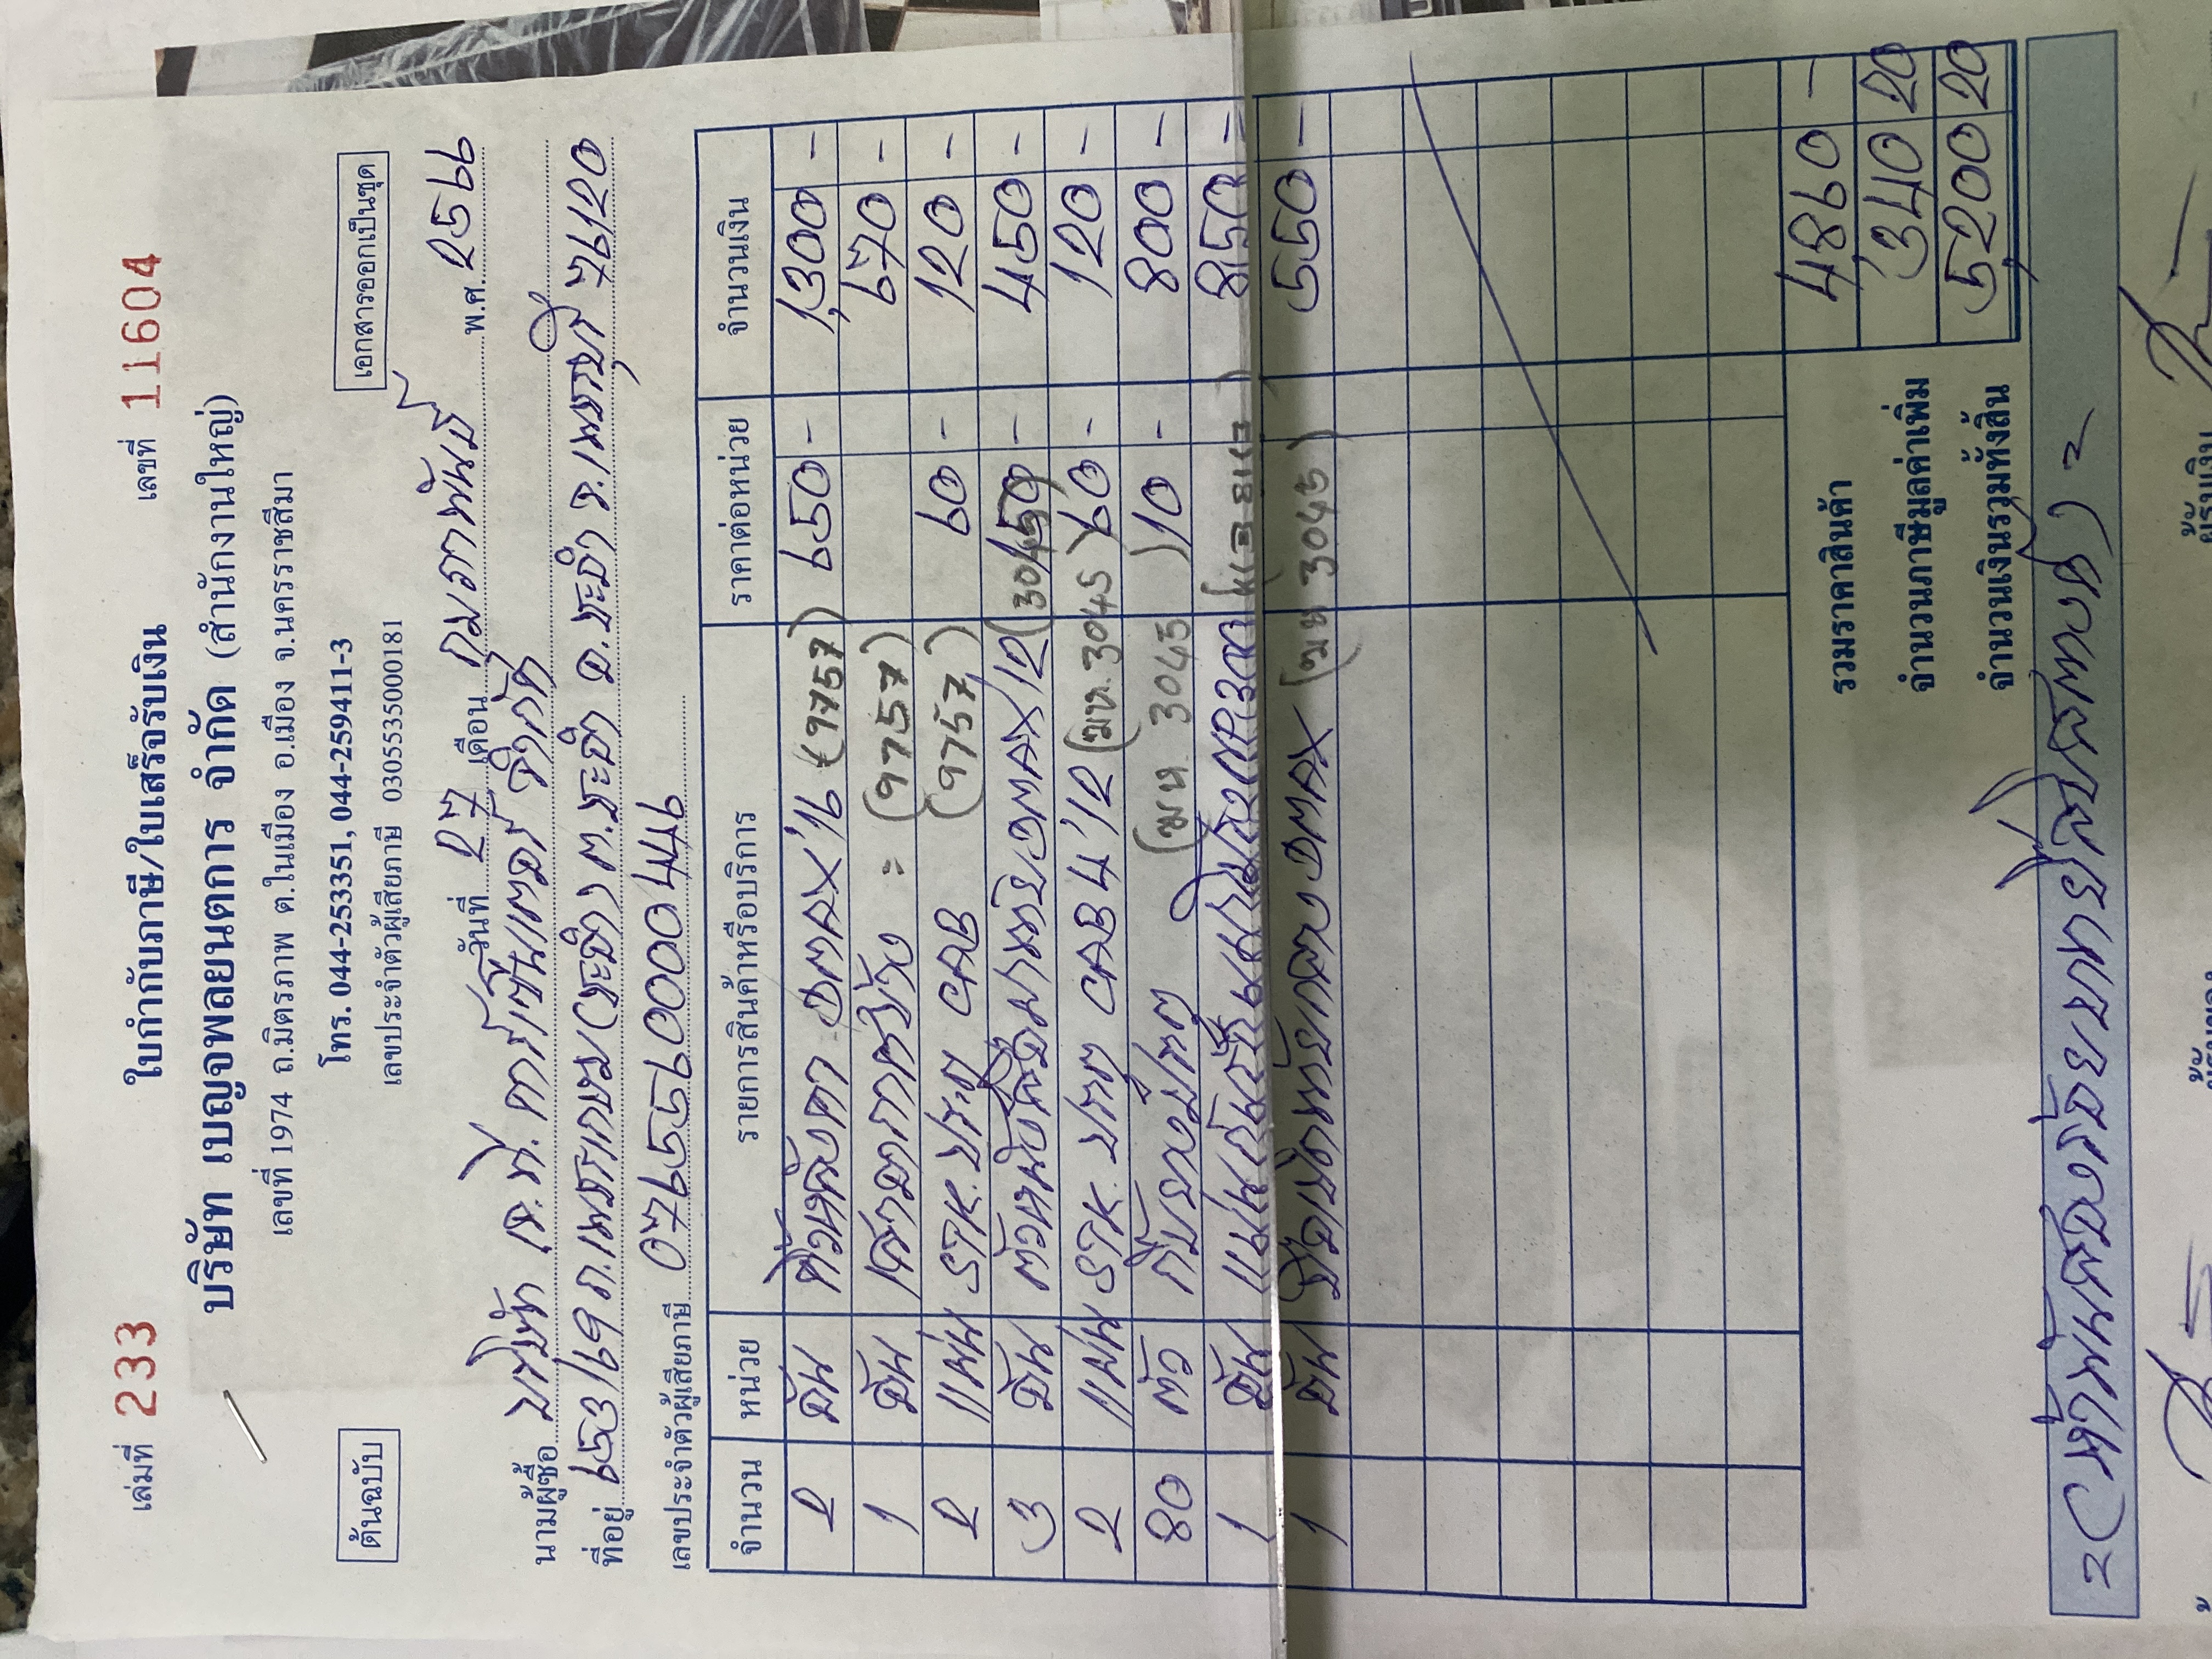 เล่มที่ 233 ใบกำกับภาษี/ใบเสร็จรับเงิน เลขที่ 11604
บริษัท เบญจพลอยนตการ จำกัด (สำนักงานใหญ่)
เลขที่ 1974 ถ.มิตรภาพ ต.ในเมือง อ.เมือง จ.นครราชสีมา
ต้นฉบับ โทร. 044-253351, 044-259411-3 เอกสารออกเป็นชุด
เลขประจำตัวผู้เสียภาษี 0305535000181
วันที่ 27 เดือน กุมภาพันธ์ พ.ศ. 2566
นามผู้ซื้อ บริษัท เจ.ที. คาร์เซ็นเตอร์ จำกัด
ที่อยู่ 653/69 ถ.เพชรเกษม (ชะอำ) ต.ชะอำ อ.ชะอำ จ.เพชรบุรี 76120
เลขประจำตัวผู้เสียภาษี 0765590000449
จำนวน หน่วย รายการสินค้าหรือบริการ ราคาต่อหน่วย จำนวนเงิน
2 อัน คิ้วหลังคา DMAX'16 (9757) 650 - 1,300 -
1 อัน เสาอากาศข้าง = (9757) 670 -
2 แผ่น STK. ประตู CAB (9757) 60 - 120 -
3 อัน DMAX'12 (3045) 150 - 450 -
2 แผ่น STK. ประตู CAB 4'12 (ฒห.3045) 60 - 120 -
80 ตัว กิ๊บยางประตู (ฒห. 3045) 10 - 800 -
1 อัน 850 -
1 อัน DMAX (ฒห 3045) 550 -
รวมราคาสินค้า 4860 -
จำนวนภาษีมูลค่าเพิ่ม 340 20
จำนวนเงินรวมทั้งสิ้น 5,200 20
= (ห้าพันสองร้อยบาทยี่สิบสตางค์) =
ผู้รับเงิน